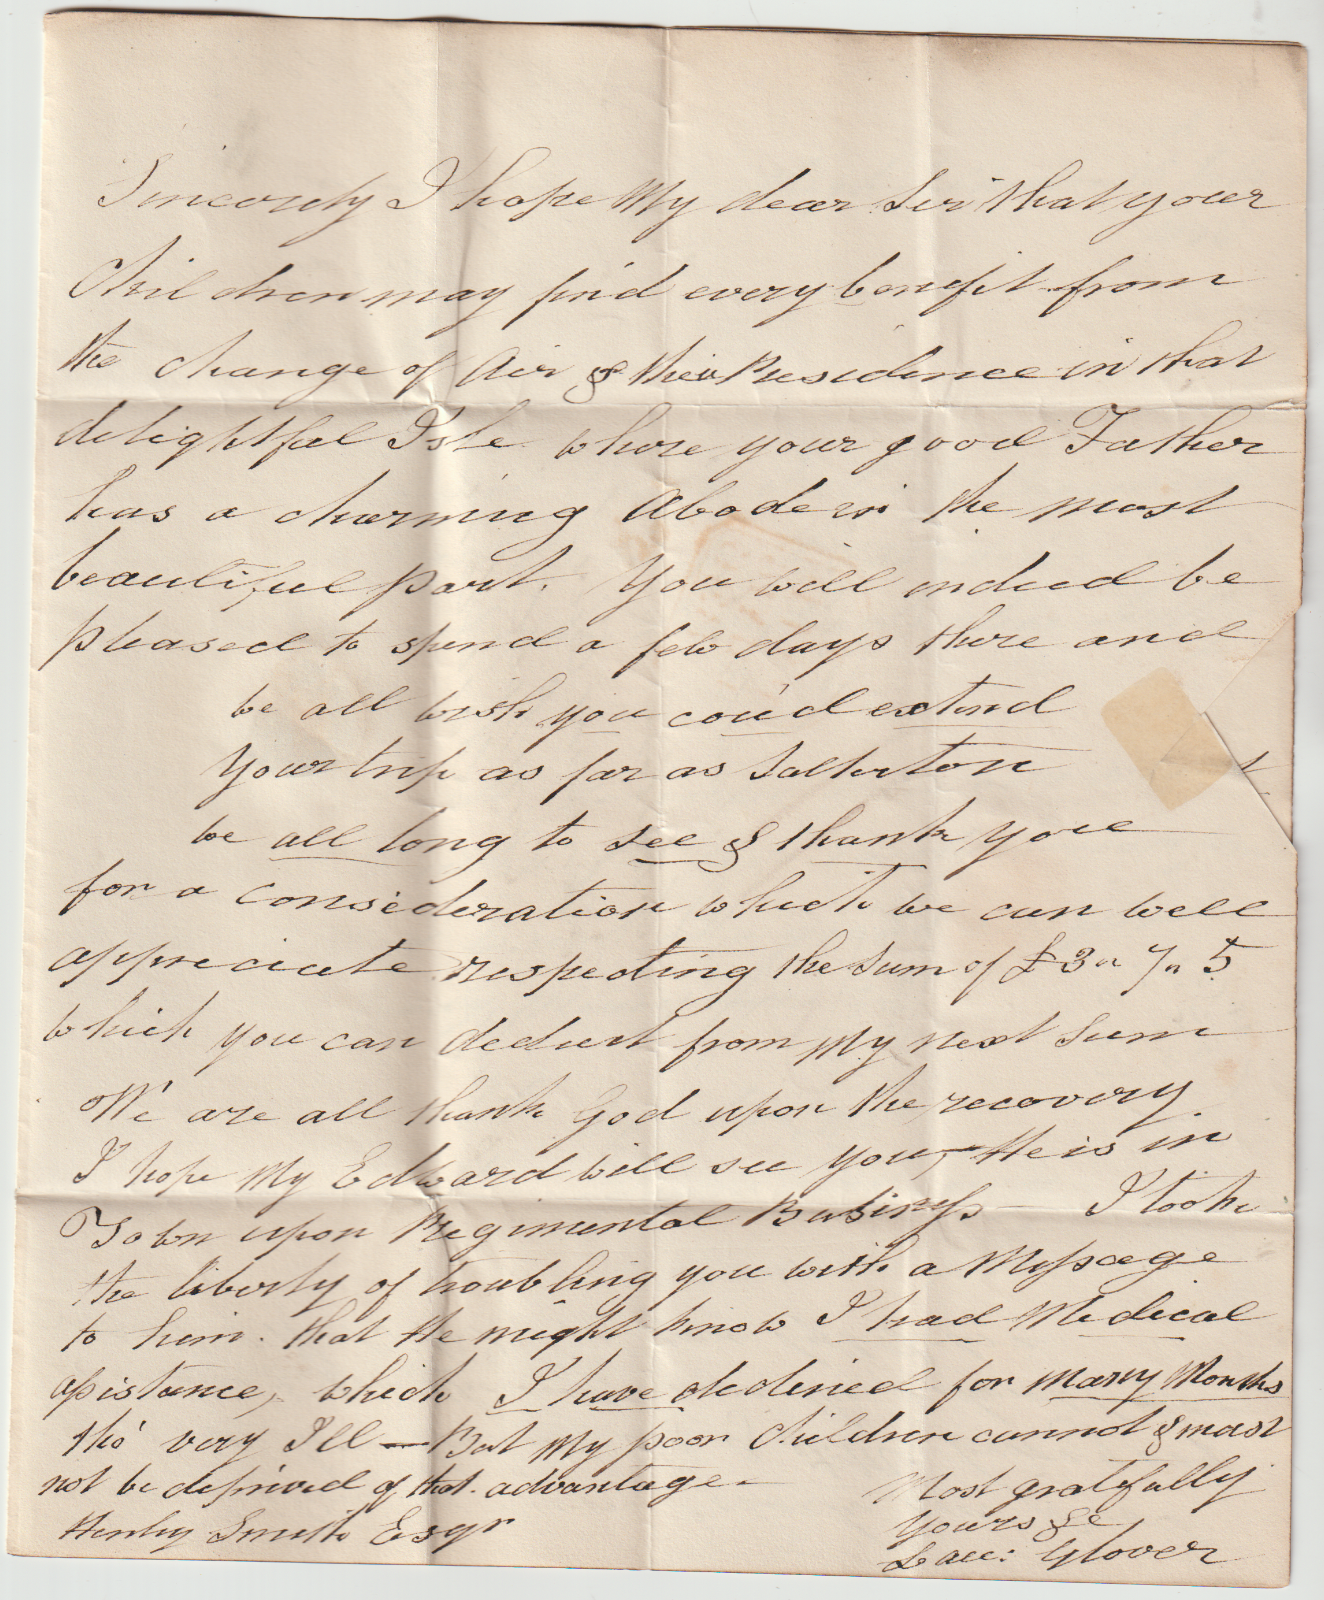 Sincerely I hope My dear Sir that your
Children may find every benefit from
the change of Air & their Residence in that
delightful Isle where your good Father
has a charming Abode in the most
beautiful part. You will indeed be
pleased to spend a few days there and
we all wish you cou'd extend
Your trip as far as Salterton
we all long to see & thank you
for a consideration which we can well
appreciate respecting the Sum of £3 " 7 " 5
which you can deduct from My next Sum
We are all thank God upon the recovery
I hope My Edward will see you, He is in
Town upon Regimental Business I took
the liberty of troubling you with a Message
to him. that He might know I had Medical
assistance, which I have declined for many Months
tho' very Ill — But My poor Children cannot & must
not be deprived of that advantage.
Most gratefully
Yours &c
Henry Smith Esqr
Glover